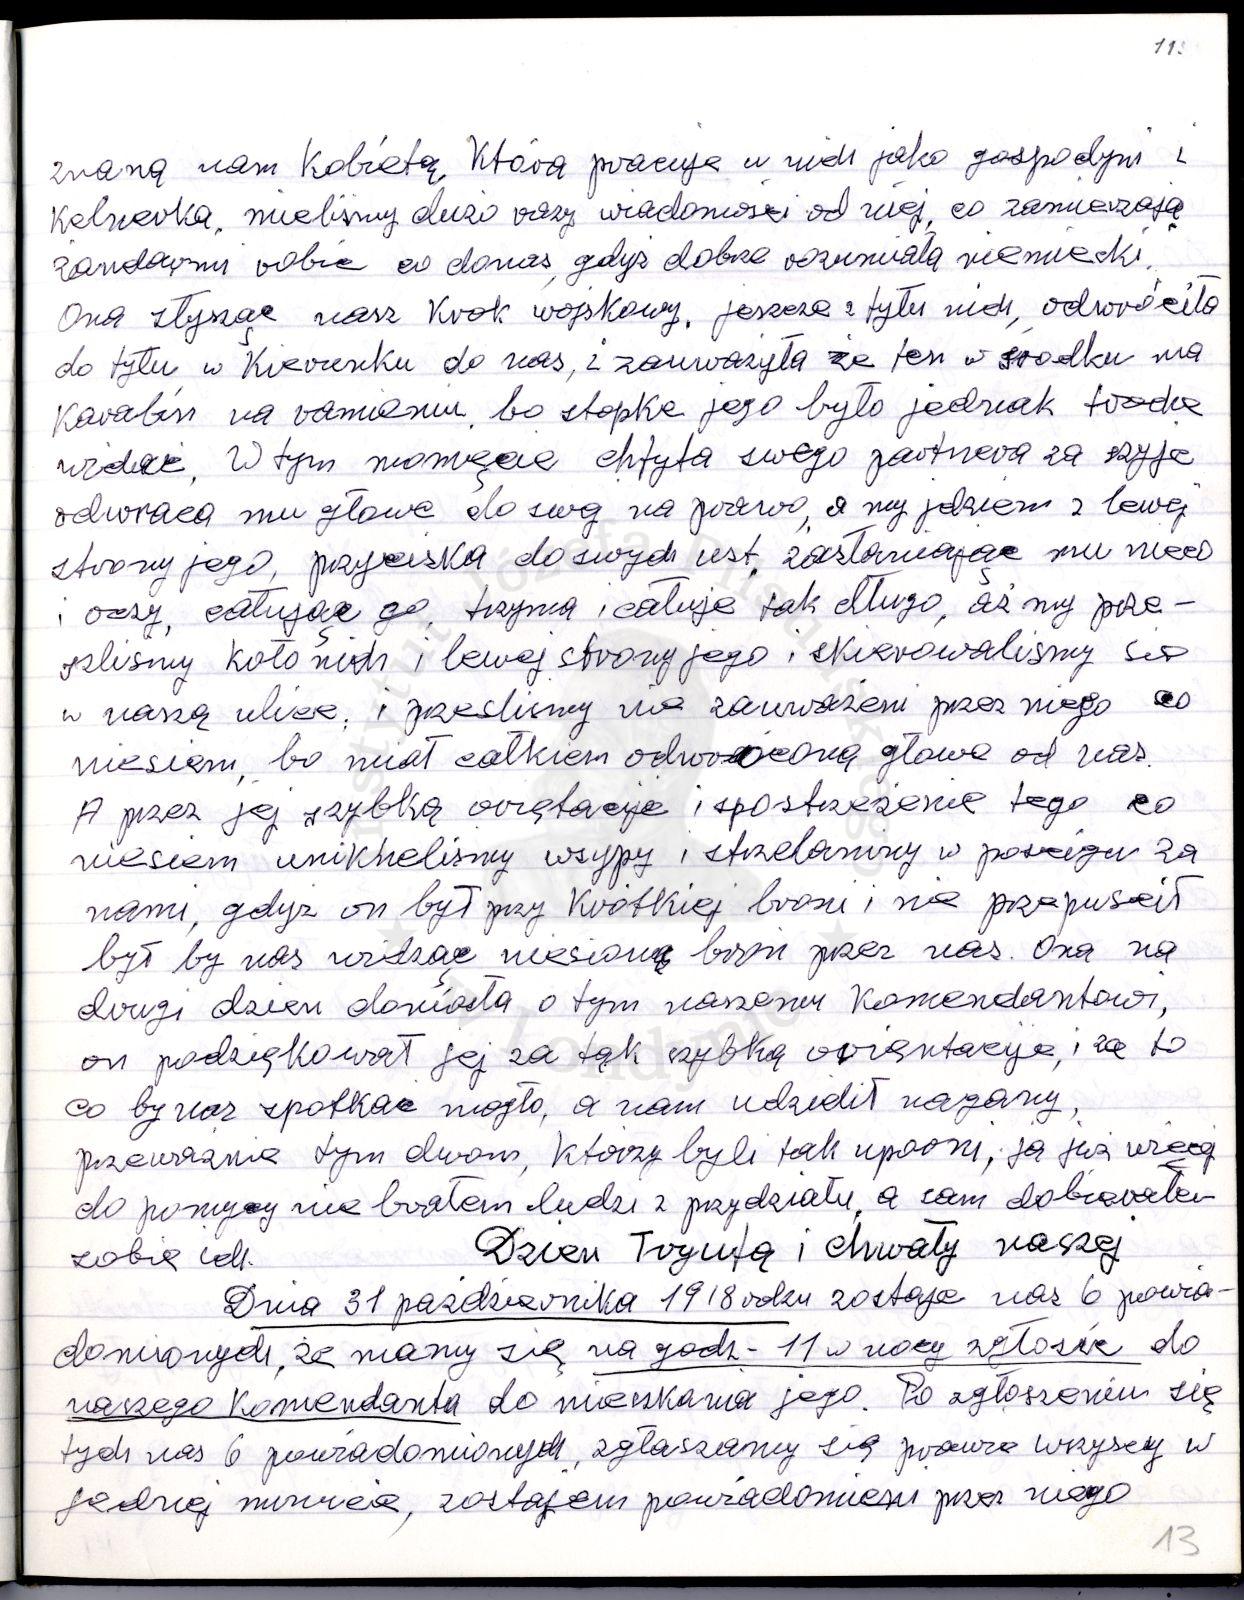 113
znaną nam Kobietą, Która pracuje w nich jako gospodyni i
Kelnerka, mieliśmy dużo razy wiadomości od niej, co zamierzają
żandarmi robić co donas, gdyż dobrze rozumiała niemiecki.
Ona słysząc nasz Krok wojskowy, jeszcze z tyłu nich, odwróciła
do tyłu, w Kierunku do nas, i zauważyła że ten w środku ma
Karabin na ramieniu, bo stopke jego było jednak troche
widać, W tym momęcie chtyta swego partnera za szyje
odwraca mu głowe do swej na prawo, a my jdziem z lewej
strony jego, przyciska do swych ust, zasłaniając mu nieco
i oczy, całując go, trzyma i całuje tak długo, aż my prze-
szliśmy koło nich i lewej strony jego i skierowaliśmy sie
w naszą ulice, i prześliśmy nie zauważeni przez niego co
niesiem, bo miał całkiem odwróconą głowe od nas.
A przez jej szybką oriętacije i spostrzeżenie tego co
niesiem unikneliśmy wsypy i strzelaniny w pościgu za
nami, gdyż on był przy Krótkiej broni i nie przepuścił
był by nas widząc niesioną broń przez nas. Ona na
drugi dzien doniosła o tym naszemu Komendantowi,
on podziękował jej za tak szybką oriąntacije, i za to
co by nas spotkać mogło, a nam udzielił nagany,
przeważnie tym dwom, Którzy byli tak uparni, ja już więcej
do pomocy nie brałem ludzi z przydziału, a sam dobierałem
sobie ich.
Dzien Tryufą i chwały naszej
Dnia 31 października 1918 roku zostaje nas 6 powia-
domionych, że mamy się na godz- 11 w nocy zgłosić do
naszego Komendanta do mieszkania jego. Po zgłoszeniu się
tych nas 6 powiadomionych, zgłaszamy się prawie wszyscy w
jednej minucie, zostajem powiadomieni przez niego
13
Instytut Józefa Piłsudskiego
w Londynie